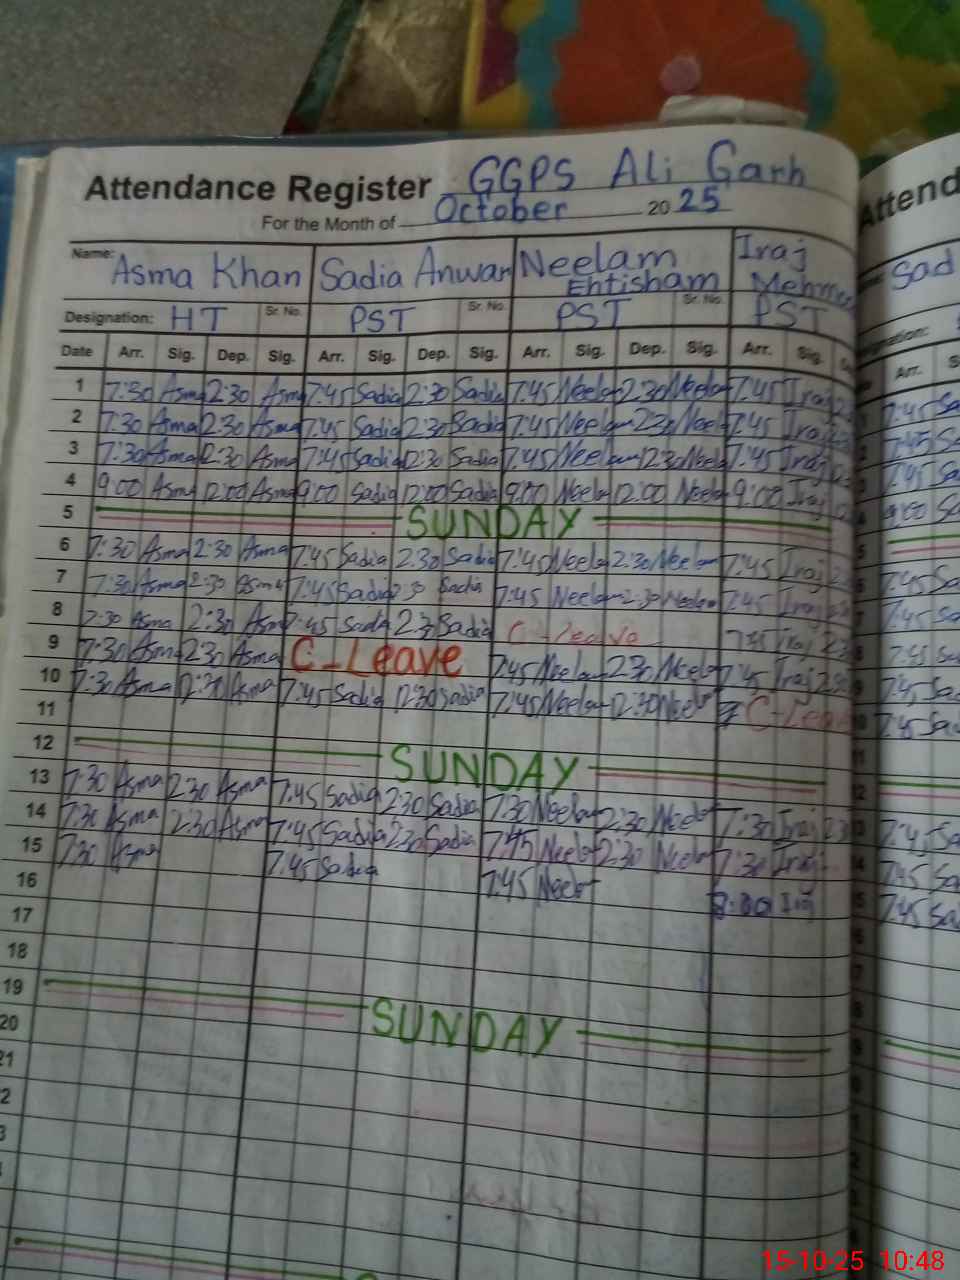 Attendance Register GGPS Ali Garh
For the Month of October 2025
Name: Asma Khan Sadia Anwar Neelam Ehtisham Iraj
Designation: HT Sr. No. PST Sr. No. PST Sr. No. PST
Date Arr. Sig. Dep. Sig. Arr. Sig. Dep. Sig. Arr. Sig. Dep. Sig. Arr. Sig.
1 7:30 Asma 2:30 Asma 7:45 Sadia 2:30 Sadia 7:45 Neelam 2:30 Neelam 7:45 Iraj
2 7:30 Asma 2:30 Asma 7:45 Sadia 2:30 Sadia 7:45 Neelam 2:30 Neelam 7:45 Iraj
3 7:30 Asma 2:30 Asma 7:45 Sadia 2:30 Sadia 7:45 Neelam 2:30 Neelam 7:45 Iraj
4 9:00 Asma 12:00 Asma 9:00 Sadia 12:00 Sadia 9:00 Neelam 12:00 Neelam 9:00 Iraj
5 SUNDAY
6 7:30 Asma 2:30 Asma 7:45 Sadia 2:30 Sadia 7:45 Neelam 2:30 Neelam 7:45 Iraj
7 7:30 Asma 2:30 Asma 7:45 Sadia 2:30 Sadia 7:45 Neelam 2:30 Neelam 7:45 Iraj
8 7:30 Asma 2:30 Asma 7:45 Sadia 2:30 Sadia C-Leave 7:45 Iraj
9 7:30 Asma 2:30 Asma C-Leave 7:45 Neelam 2:30 Neelam 7:45 Iraj 2:30
10 7:30 Asma 12:30 Asma 7:45 Sadia 12:30 Sadia 7:45 Neelam 12:30 Neelam C-Leave
11
12 SUNDAY
13 7:30 Asma 2:30 Asma 7:45 Sadia 2:30 Sadia 7:30 Neelam 2:30 Neelam 7:30 Iraj
14 7:30 Asma 2:30 Asma 7:45 Sadia 2:30 Sadia 7:45 Neelam 2:30 Neelam 7:30 Iraj
15 7:30 Asma 7:45 Sadia 7:45 Neelam 8:00 Iraj
16
17
18
19 SUNDAY
20
21
15-10-25 10:48